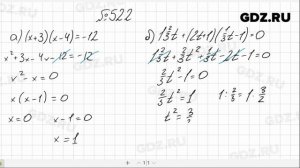 GDZ.RU
№522
а) (x+3)(x-4)=-12
x²+3x-4x-12=-12
x²-x=0
x(x-1)=0
x=0 x-1=0
x=1
б) 1⅔t+(2t+1)(⅓t-1)=0
⅔t²-1=0
⅔t²=1 1:⅔=1·3/2
t²=3/2
GDZ.RU